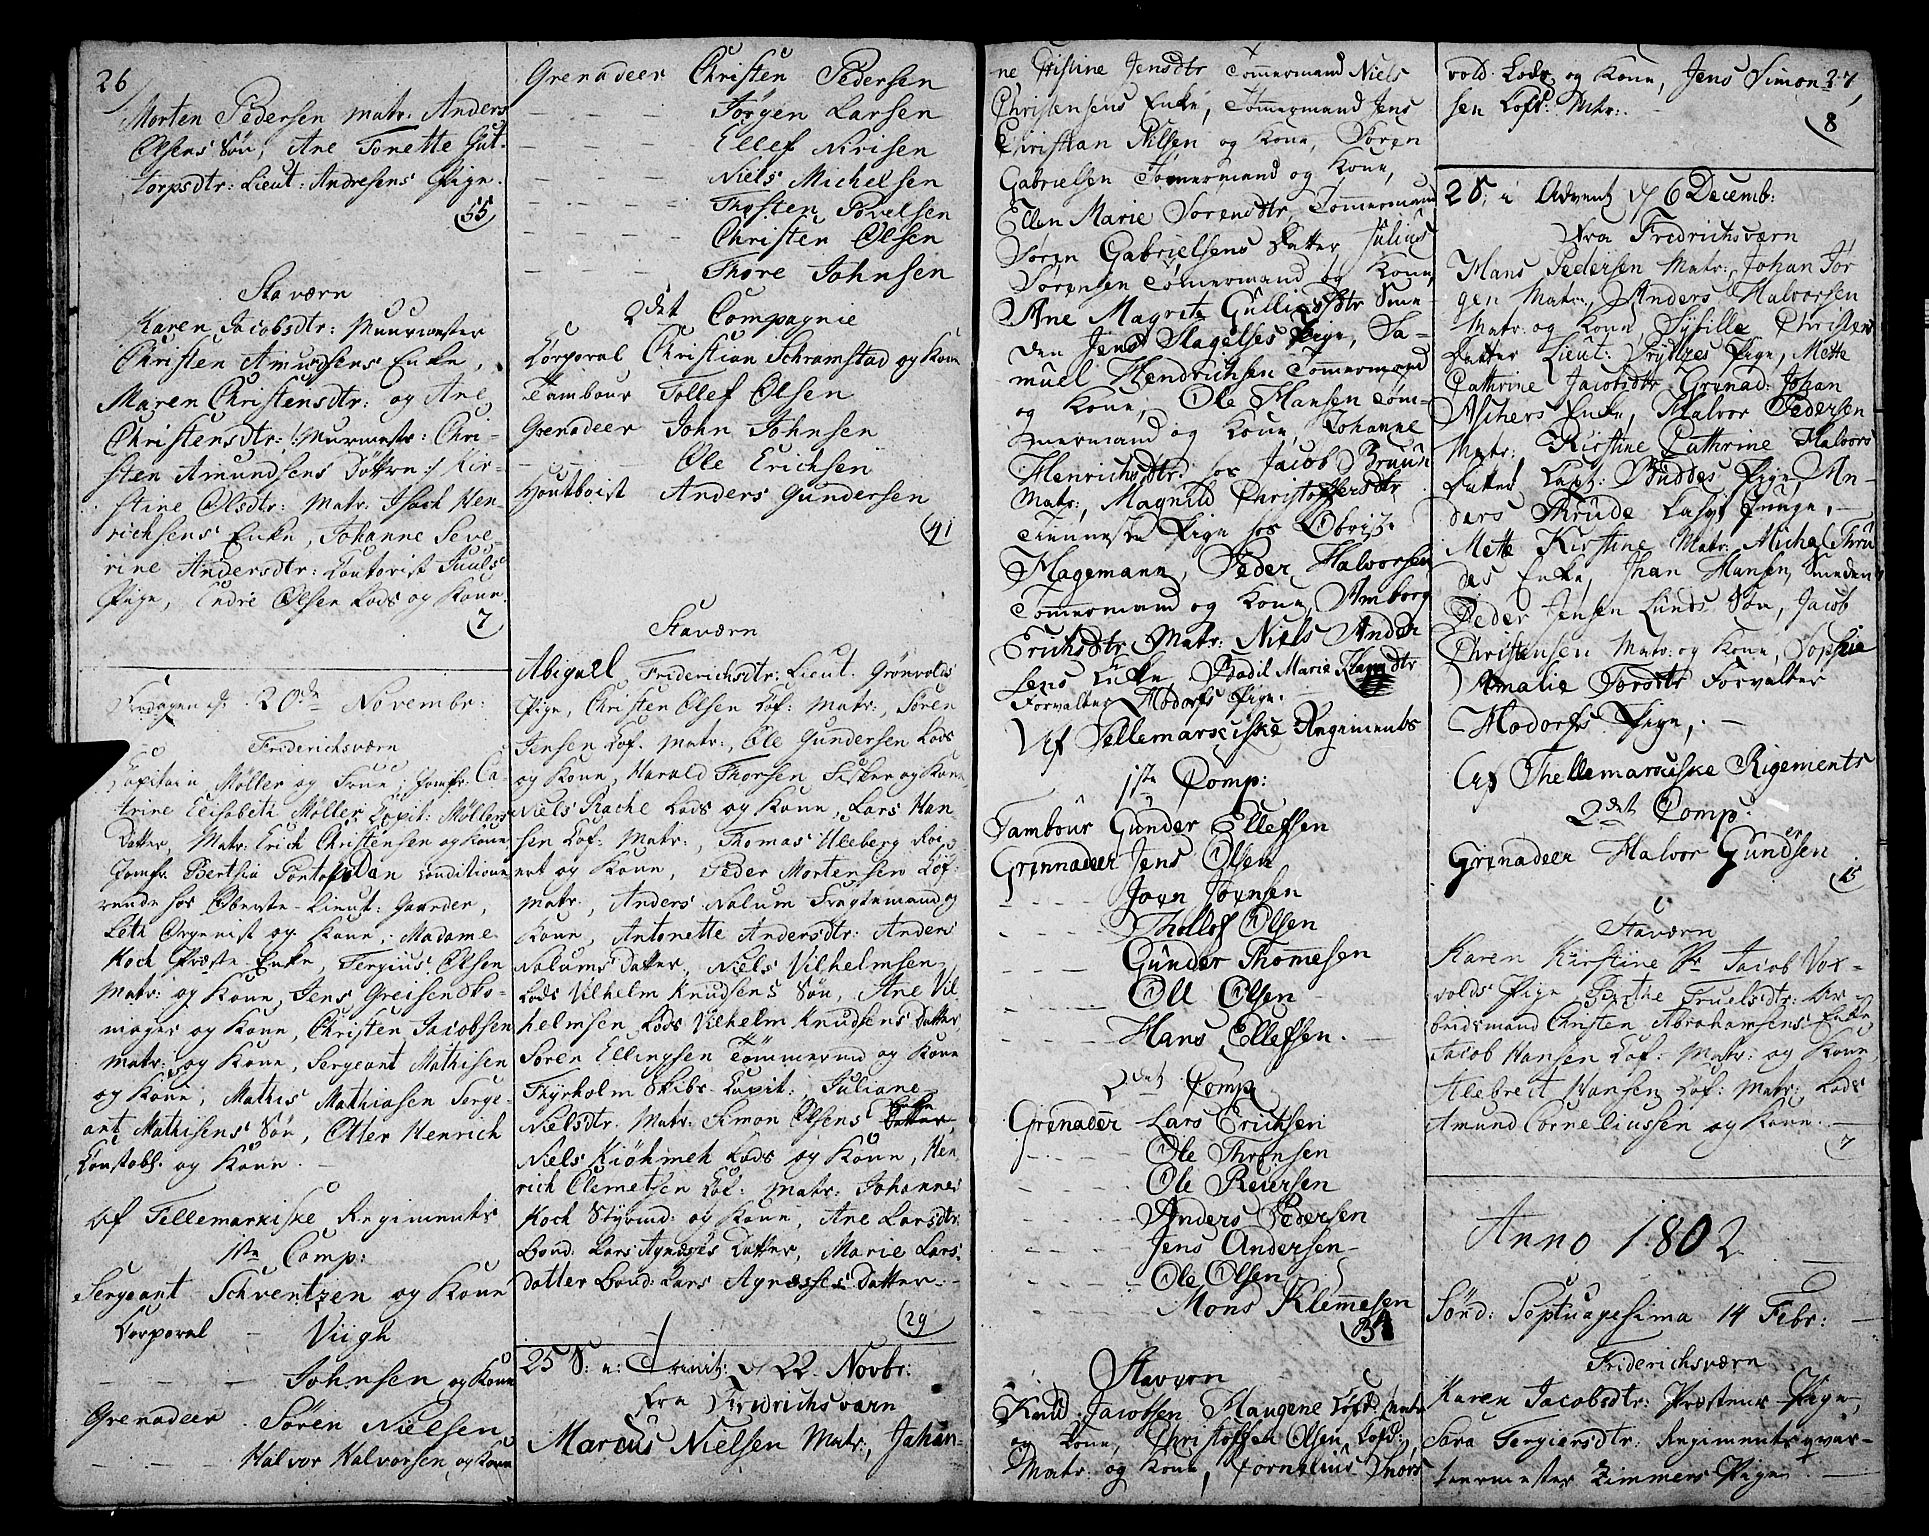 26
Morten Pedersen matr: Anders
Olsens Søn, Ane Tonette Gut-
torpsdtr: Lieut: Andresens Pige.
55
Staværn
Karen Jacobsdtr: Muurmester
Christen Amundsens Enke,
Maren Christensdtr: og Ane
Christensdtr: /: Murmestr: Chri-
sten Amundsens Døttre :/ Kir-
stine Olsdtr: Matr: Isach Hen-
richsens Enke, Johanne Seve-
rine Andersdtr: Contorist Juuls
Pige, Endre Olsen Lods og Kone.
7
Fredagen d: 20de Novembr:
Friderichsværn
Capitain Møller og Frue, Jomfr: Ca-
trine Elisabeth Møller Capit: Møllers
Datter, Matr: Erich Christensen og Kone
Jomfr: Berthia Pontoppidan Conditione-
rende hos Oberste-Lieut: Gaarder,
Leth Organist og Kone, Madame
Koch Præste-Enke, Tergius Olsen
Matr: og Kone, Jens Greisen Sko-
mager og Kone, Christen Jacobsen
matr: og Kone, Sergeant Mathisen
og Kone, Mathis Mathiasen Serge-
ant Mathisens Søn, Otter Henrich
Constabl. og Kone.
Af Tellemarkiske Regiments
1ste Comp:
Sergeant Schventzen og Kone
Corporal - Viigh
- - Johnsen og Kone
Grenadeer Søren Nielsen
- - Halvor Halvorsen og Kone
Grenadeer Christen Pedersen
- - Jørgen Larsen
- - Ellef Nirisen
- - Niels Michelsen
- - Thosten Povelsen
- - Christen Olsen
- - Thore Johnsen
2det Compagnie
Corporal Christian Schramstad og Kone
Tambour Tollef Olsen
Grenadeer John Johnsen
- - Ole Erichsen
Houtboist Anders Gundersen
41
Staværn
Abigaël Friderichsdtr: Lieut. Grønvolds
Pige, Christen Olsen Lof: Matr:, Søren
Jensen Lof. Matr:, Ole Gundersen Lods
og Kone, Harald Thorsen Fisker og Kone
Niels Rache Lods og Kone, Lars Han-
sen Lof: Matr:, Thomas Weeberg
og Kone, Peder Mortensen Lof:
Matr:, Anders Nalum Fragtemand og
Kone, Antonette Andersdtr: Anders
Nalums Datter, Niels Vilhelmsen
Lods Vilhelm Knudsens Søn, Ane Vil-
helmsen Lods Vilhelm Knudsens Datter
Søren Ellingsen Tømmermd og Kone
Thyrholm Skibs Capit:, Juliane
Nielsdtr. Matr: Simon Olsens Enke
Niels Kiøhmeh Lods og Kone, Hen-
rich Clemetsen Lof: Matr: Johannes
Koch Styrmd: og Kone, Ane Larsdtr:
Bond: Lars Agnæses Datter, Marie Lars-
datter Bond: Lars Agnæsses Datter.
29
25 S: e: Trinit: d 22 Novbr:
Fra Fridrichsværn
Marcus Nielsen Matr:, Johan-
ne Cristine Jensdtr Tømmermand Niels
Christensens Enke, Tømmermand Jens
Christian Nilsen og Kone, Søren
Gabrielsen Tømmermand og Kone,
Ellen Marie Sørensdtr, Tømmermand
Søren Gabrielsens Datter, Julius
Sørensen Tømmermand og Kone,
Ane Magrete Gulliesdtr Sme-
den Jens Slagelses Pige, Sa-
muel Hendrichsen Tømmermand
og Kone, Ole Hansen Tøm-
mermand og Kone, Johanne
Henrichsdtr hos Jacob Bruun
Matr:, Magnild Christoffersdtr
Tieneste Pige hos
Hagemann, Peder Halvorsen
Tømmermand og Kone, Amborg
Erichsdtr Matr: Niels Ander-
sens Enke, Bodil Marie Hansdtr
Forvalter Modorfs Pige.
Af Tellemarkiske Regiments
1ste Comp:
Tambour Gunder Ellefsen
Grennadeer Jens Olsen
- - - Joen Joensen
- - - Thollof Olsen
- - - Gunder Thomesen
- - - Ole Olsen
- - - Hans Ellefsen.
2det Comp
Grenadeer Lars Erichsen
- - - Ole Thronsen
- - - Ole Reiersen
- - - Anders Pedersen
- - - Jens Andersen
- - - Ole Olsen
- - - Mons Klemmesen
34
Stavern
Knud Jacobsen Haugene Lofd: Matr
og Kone, Christoffen Olsen Lofd:
Matr: og Kone, Cornelius Thors
vold Lods og Kone, Jens Simon-
27,
sen Lofd: Mtr:.
8
2 S. i Advent d 6 Decemb:
Fra Fredrichsværn
Hans Pedersen Matr:, Johan Jør
gen Matr:, Anders Halvorsen
Matr: og Kone, Sysille Christens
Datter Lieut: Pige, Mette
Cathrine Jacobsdtr Grenad: Johan
Aschers Enke, Halvor Pedersen
Matr: Kirstine Cathrine Halvors
Datter Capt: Buddes Pige, An-
ders Thrude Dreng,
Mette Kirstine Matr: Michel Thru
des Enke, Jhan Hansen Smeden
Peder Jensen Lunds Søn, Jacob
Christensen Matr: og Kone, Sophie
Amalie Torsdtr Forvalter
Modorfs Pige,.
Af Thellemarkiske Rigements
2det Comp:
Grenadeer Halvor Gundersen
15
Staværn
Karen Kirstine Pr Jacob Vox-
volds Pige, Birthe Truelsdtr: Ar-
beidsmand Christen Abrahamsens Enke
Jacob Hansen Lof: Matr: og Kone,
Hebreit Hansen Lof: Matr: Lods
Amund Corneliussen og Kone.
7
Anno 1802
Sønd: Septuagesima 14 Febr:
Friderichsværn
Karen Jacobsdtr: Præstens Pige,
Sara Tergiersdtr: Regimentsqvar-
teermester Zimmers Pige.